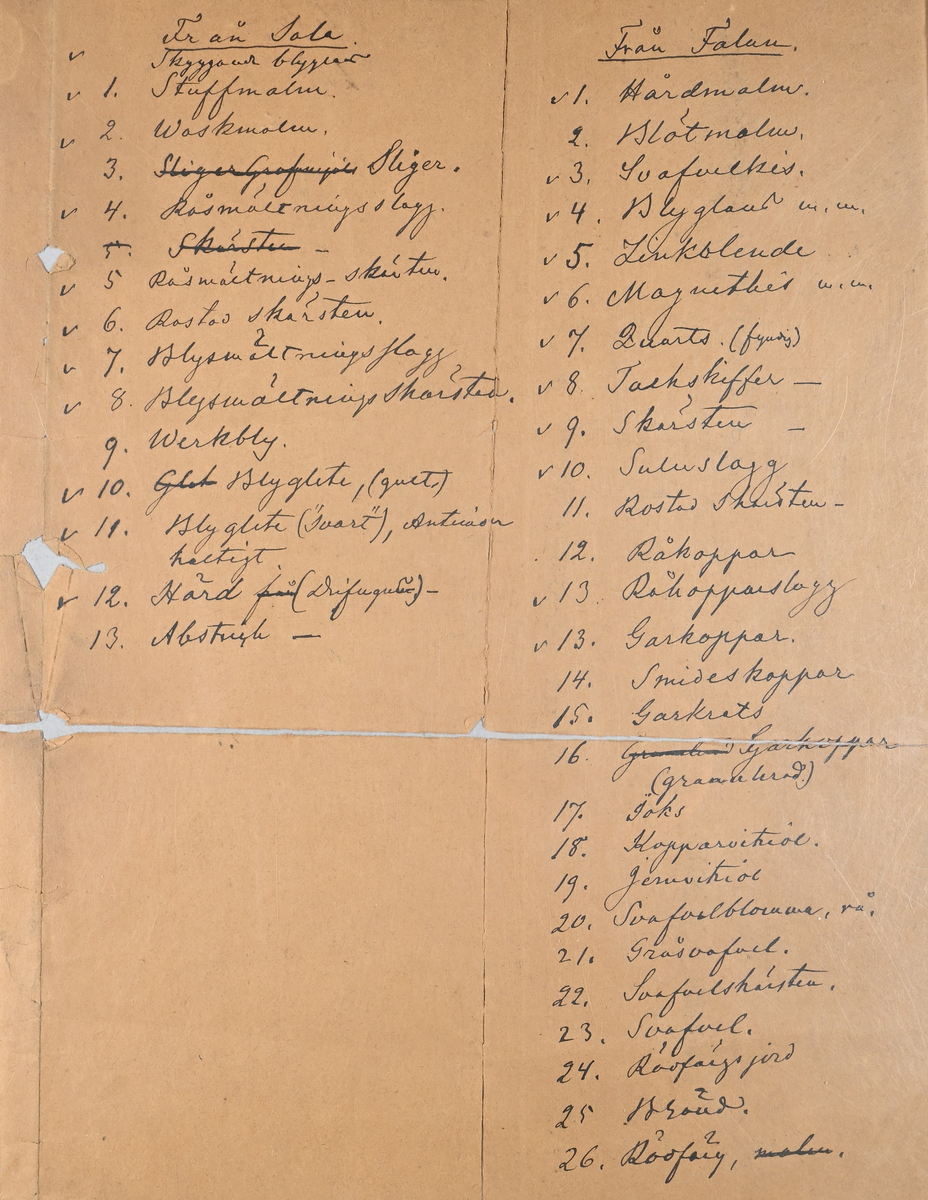 Från Sala.
✓ Skyggande blyglans
✓ 1. Stuffmalm.
✓ 2. Waskmalm.
3. Sliger.
✓ 4. Råsmältningsslagg.
5. Skärsten –
✓ 5 Råsmältnings-skärsten.
✓ 6. Rostad skärsten.
✓ 7. Blysmältningsslagg
✓ 8. Blysmältningsskärsten.
9. Werkbly.
✓ 10. Glet Blyglete, (gult,)
✓ 11. Blyglete ("svart"), Antimon
haltigt.
✓ 12. Härd –
13. Abstrich –
Från Falun.
✓ 1. Hårdmalm.
2. Blötmalm.
✓ 3. Svafvelkis.
✓ 4. Blyglans m.m.
✓ 5. Zinkblende
✓ 6. Magnetkis m.m.
✓ 7. Quarts. (fyndig)
✓ 8. Talkskiffer –
✓ 9. Skärsten –
✓ 10. Suluslagg
11. Rostad Skärsten –
12. Råkoppar
✓ 13. Råkopparslagg
✓ 13. Garkoppar.
14. Smideskoppar
15. Garkrats
16. Garkoppar
(granulerad.)
17. Töks
18. Kopparvitriol.
19. Jernvitriol
20. Svafvelblomma, rå.
21. Gråsvafvel.
22. Svafvelskärsten.
23. Svafvel.
24. Rödfärgsjord
25 Bränd.
26. Rödfärg, malm.